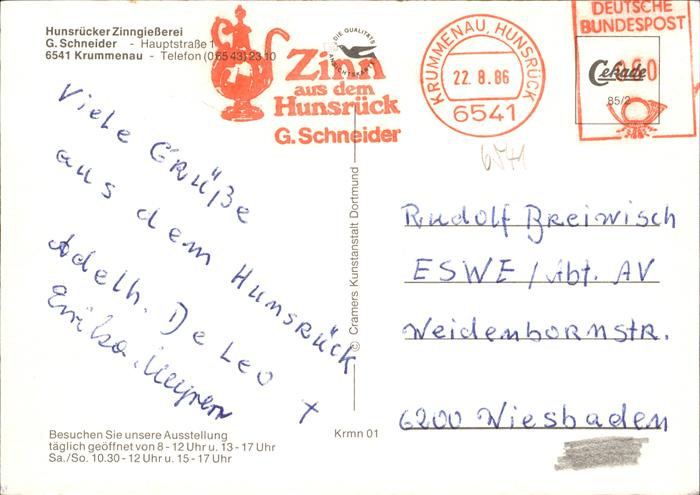 Hunsrücker Zinngießerei
G. Schneider - Hauptstraße 1
6541 Krummenau - Telefon (06543) 23 10
Zinn
aus dem
Hunsrück
G. Schneider
DIE QUALITÄTS
ANSICHTSKARTE
KRUMMENAU, HUNSRÜCK
22.8.86
6541
DEUTSCHE
BUNDESPOST
Cekade
060
85/2
6541
Viele Grüße
aus dem Hunsrück
Adelh. De Leo +
Erika
Rudolf Breiwisch
ESWE / Abt. AV
Weidenbornstr.
6200 Wiesbaden
© Cramers Kunstanstalt Dortmund
Besuchen Sie unsere Ausstellung
täglich geöffnet von 8 - 12 Uhr u. 13 - 17 Uhr
Sa./So. 10.30 - 12 Uhr u. 15 - 17 Uhr
Krmn 01